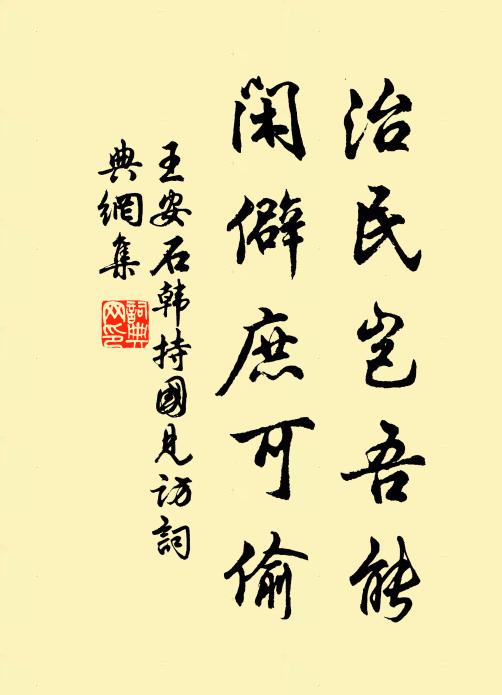 治民岂吾能
闲僻庶可偷
王安石韩持國见访詞
典網集
詞典
网印